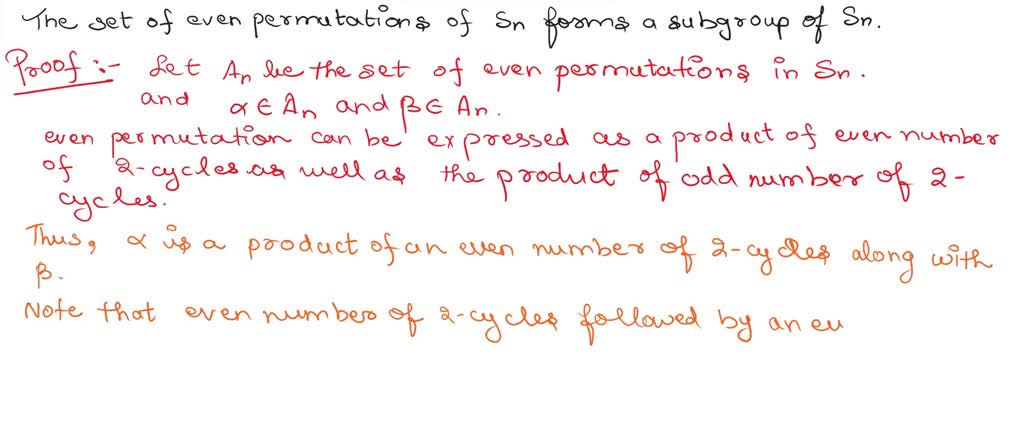 The set of even permutations of Sn forms a subgroup of Sn.
Proof :- Let An be the set of even permutations in Sn.
and α ∈ An and β ∈ An.
even permutation can be expressed as a product of even number
of 2-cycles as well as the product of odd number of 2-
cycles.
Thus, α is a product of an even number of 2-cycles along with
β.
Note that even number of 2-cycles followed by an eu